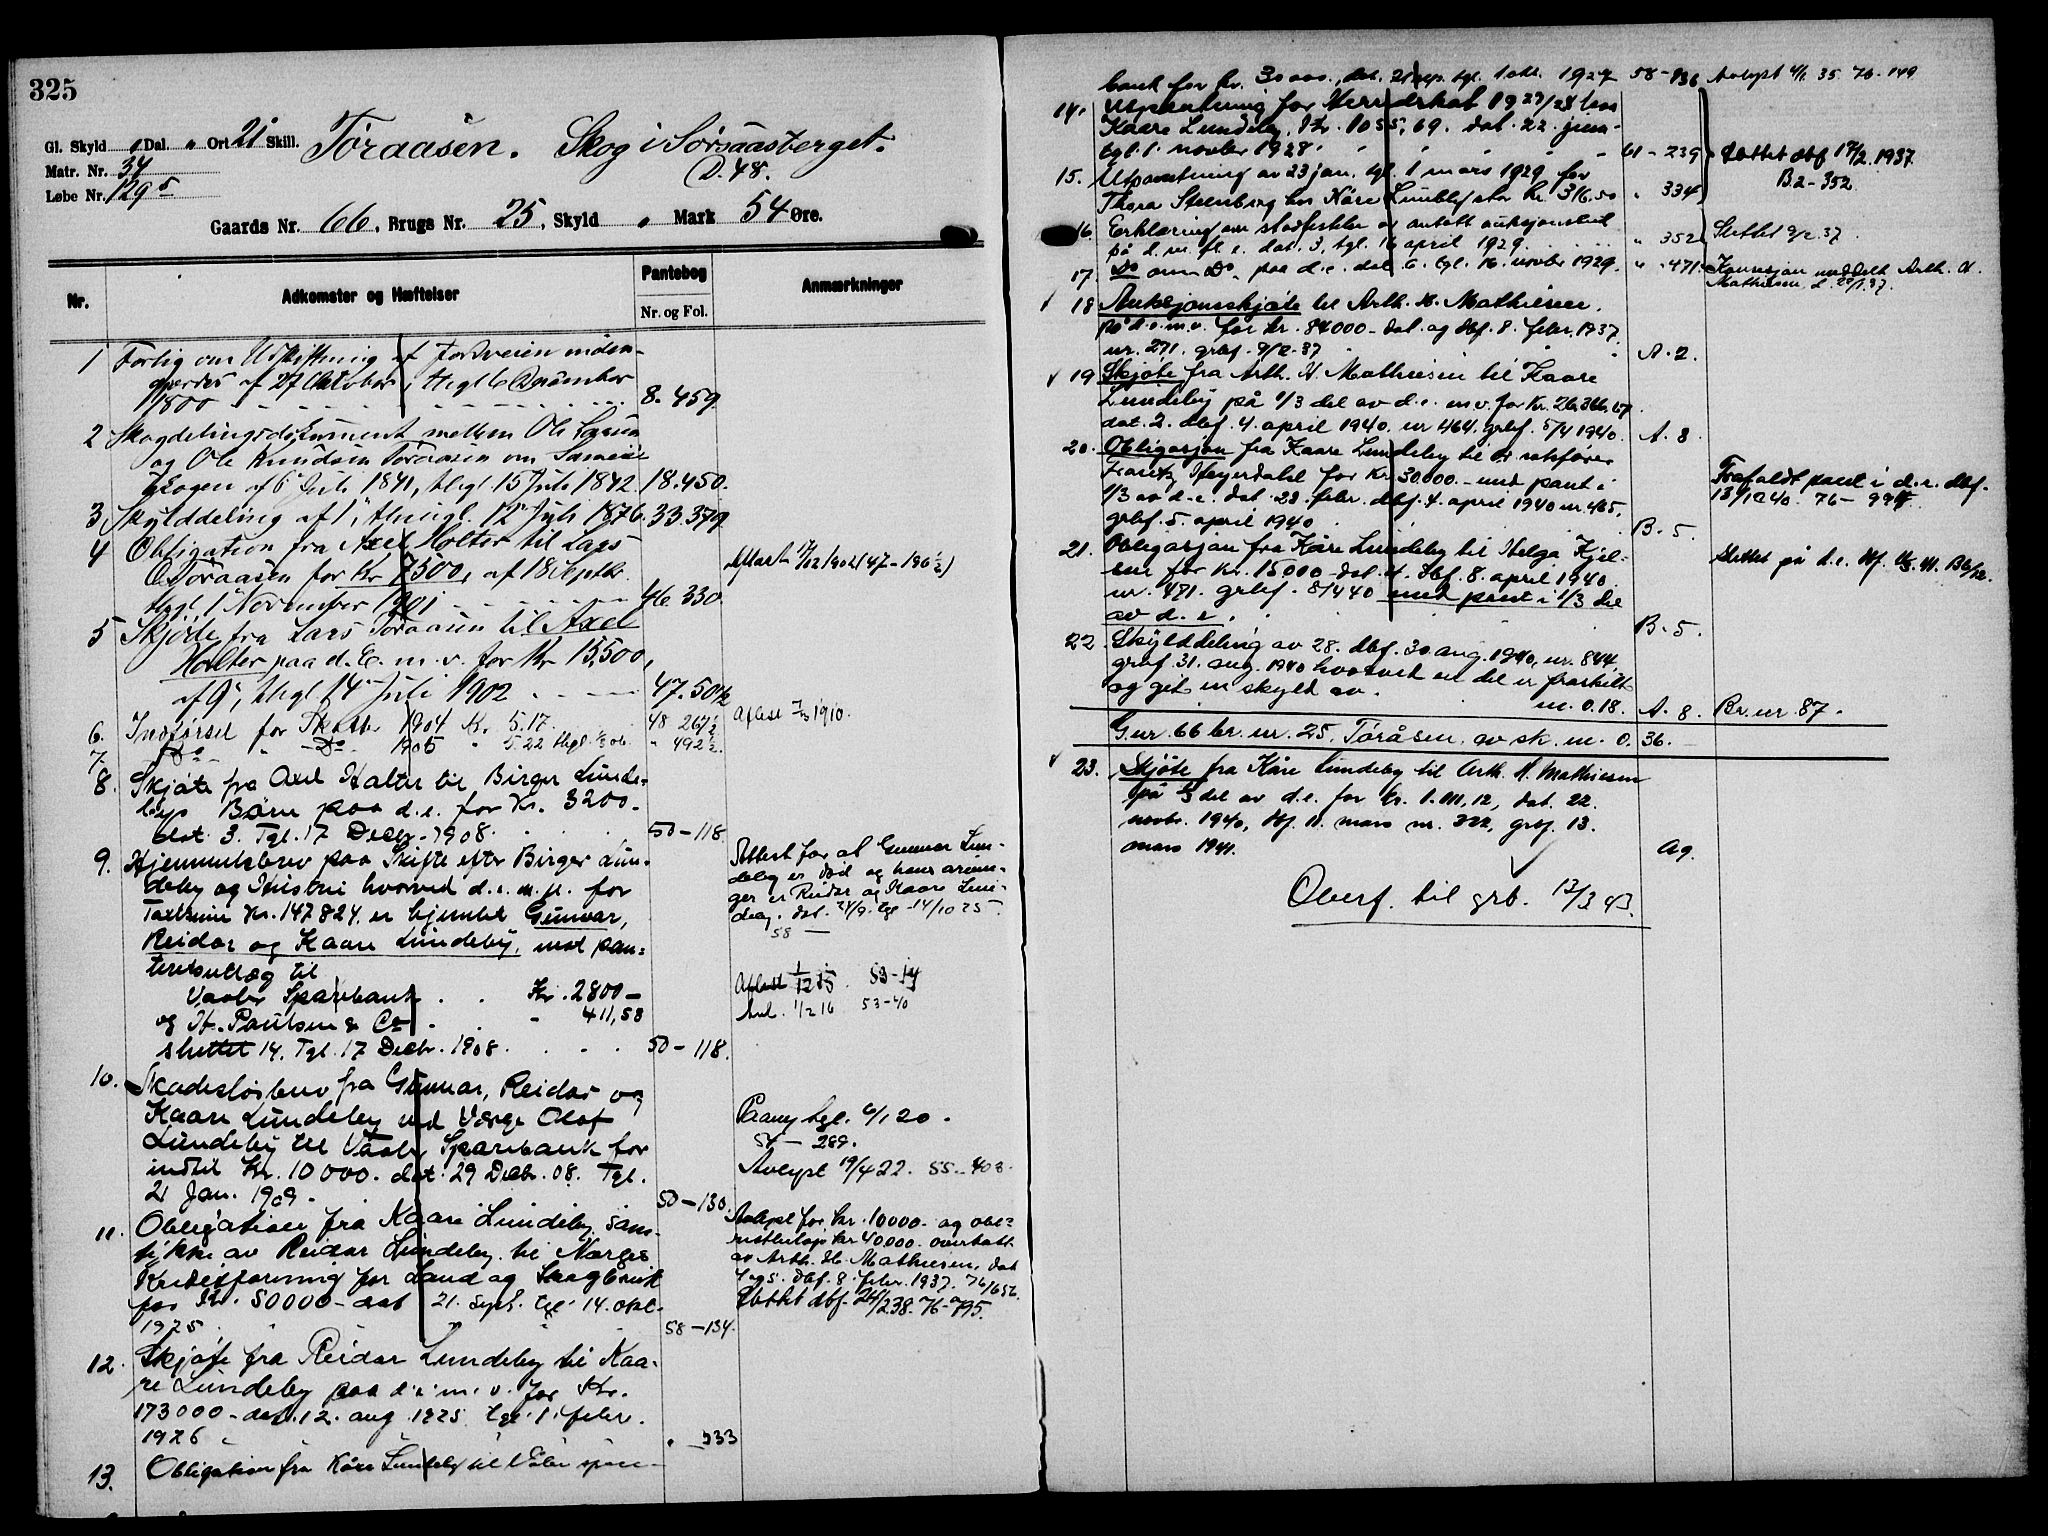 325
Gl. Skyld " Dal. " Ort 21 Skill. Toraasen. Skog i Sörsaasberget.
Matr. Nr. 34
D. 48.
Løbe Nr. 129 5
Gaards Nr. 66, Brugs Nr. 25, Skyld " Mark 54 Øre.
Nr. Adkomster og Hæftelser Pantebog Nr. og Fol. Anmærkninger
1 Forlig om Udskiftning af Jordveien inden-
gjerdes af 27 Oktober, thgl 6 December
1800 8. 459
2 Skogdelingsdokument mellem Ole
og Ole Knudsen Toraasen om
skogen af 6 Juli 1841, thgl. 15 Juli 1842. 18. 450.
3 Skylddeling af 1', thingl. 12' Juli 1876. 33. 379
4 Obligation fra Axel Holter til Lars
O Toraasen for Kr 7500, af 18 Septbr.
thgl. 1' November 1901 46. 330
Afløst 1902 (47-196½)
5 Skjöde fra Lars Toraasen til Axel
Holter paa d. E. m. v. for Kr 15,500,
af 9', thgl 14' Juli 1902 47. 50½
6. Indførsel for Skatter 1904 Kr. 5.17. 48 267½ Aflest 1910.
7. Do " Do 1905 " 5.22 thgl. " 492½
8. Skjøte fra Axel Holter til Birger Lunde-
bys Børn paa d. e. for Kr. 3200.
dat. 3. Tgl. 17 Decbr. 1908. 50-118
9. Hjemmelsbrev paa Skifte efter Birger Lun-
deby og Hustru hvorved d. e. m. fl. for
Taxtsum Kr. 147 824. er hjemlet Gunnar,
Reidar og Kaare Lundeby, mot pan-
teretsutlæg til
Vaaler Sparebank Kr. 2800-
og H. Paulsen & Co - 411,58
sluttet 14. Tgl. 17 Decbr. 1908. 50-118.
Attest for at Gunnar Lun-
deby er død og hans arvin-
ger er Reidar og Kaare Lun-
deby. dat. 24/9. tgl 14/10 25.
58 —
Afløst 1/12 15. 53-14
Anl. 1/2 16 53-40
10. Skadesløsbrev fra Gunnar, Reidar og
Kaare Lundeby ved Værge Olaf
Lundeby til Vaaler Sparebank for
indtil Kr. 10 000. dat. 29 Decbr. 08. Tgl.
21 Jan. 1909. 50-130.
Paany tgl. 6/1 20.
54 - 289.
Avlyst 19/4 22. 55-408.
11. Obligation fra Kaare Lundeby, sam-
tykke av Reidar Lundeby til Norges
Kreditforening for Land og Skogbruk
for Kr. 50000- dat 21. sept. tgl. 14. okt.
1925 58-134.
Avlyst for kr. 10000- og obl.
restbeløp kr 40.000. overtatt
av Arth. H. Mathiesen, dat
dbf. 8. febr. 1937. 76/656.
Slettet dbf. 24/2 38. 76-795.
12. Skjøte fra Reidar Lundeby til Kaa-
re Lundeby paa d. e. m. v. for Kr.
173000- dat. 12. aug 1925 tgl. 1. febr.
1926 " 333
13. Obligation fra Kåre Lundeby til Våler spare-
bank for kr. 30 000., dat. 21 sep. tgl. 1 okt. 1927 58-836 Avlyst 4/1 35. 76-149
14. Utpantning for Herredskat 1927/28 hos
Kaare Lundeby, Kr. 1055,69. dat. 22. juni-
tgl. 1. novbr 1928. 61-239 Slettet dbf 17/2.1937.
B.2-352
15. Utpantning av 23 jan. tgl. 1 mars 1929 for
Thora Stenberg hos Kåre Lundeby stor kr. 316.50 " 334
16. Erklæring om stadfestelse av antatt auksjonsbud
på d. m. fl. e. dat. 3. tgl. 16 april 1929. " 352 Slettet 9/2.37.
17. Do om Do. paa d. e. dat 6. tgl. 16. novbr 1929. " 471. Konsesjon meddelt Arth. H.
Mathiesen d. 20/1.37.
18 Auksjonsskjøte til Arth. H. Mathiesen.
på d. e. m. v. for kr. 84000- dat. og dbf. 8. febr. 1937
nr. 271. grbf. 9/2-37 A. 2.
19 Skjøte fra Arth. H. Mathiesen til Kaare
Lundeby på 1/3 del av d. e. m v. for Kr. 26.366,67.
dat. 2. dbf. 4. april 1940. nr 464. grbf. 5/4 1940. A. 8
20. Obligasjon fra Kaare Lundeby til o. r. sakfører
Heyerdahl for Kr. 30000.- med pant i
1/3 av d. e. dat. 28. febr. dbf. 4. april 1940 nr. 465.
grbf. 5. april 1940 B. 5.
Frafaldt pant i d. e. dbf.
13/12 40. 76-994.
21. Obligasjon fra Kåre Lundeby til Helga Kjel-
sen for kr. 15000- dat. 4. dbf. 8. april 1940.
nr. 471. grbf. 8/4 40 med pant i 1/3 del
av d. e. B. 5.
Slettet på d. e. dbf. 41. B6/12.
22. Skylddeling av 28. dbf. 30. aug. 1940, nr. 844,
grbf. 31. aug. 1940 hvorved en del er fraskilt
og git en skyld av. m. 0.18. A. 8. Br. nr. 87.
Gnr. 66 br. nr. 25. Toråsen av sk. m. 0.36.
23. Skjøte fra Kåre Lundeby til Arth. H. Mathiesen
på 1/3 del av d. e. for kr. 1.111,12, dat. 22.
novbr. 1940, dbf. 11. mars nr. 322, grbf. 13.
mars 1941. A9.
Overf. til grb. 12/3 43.